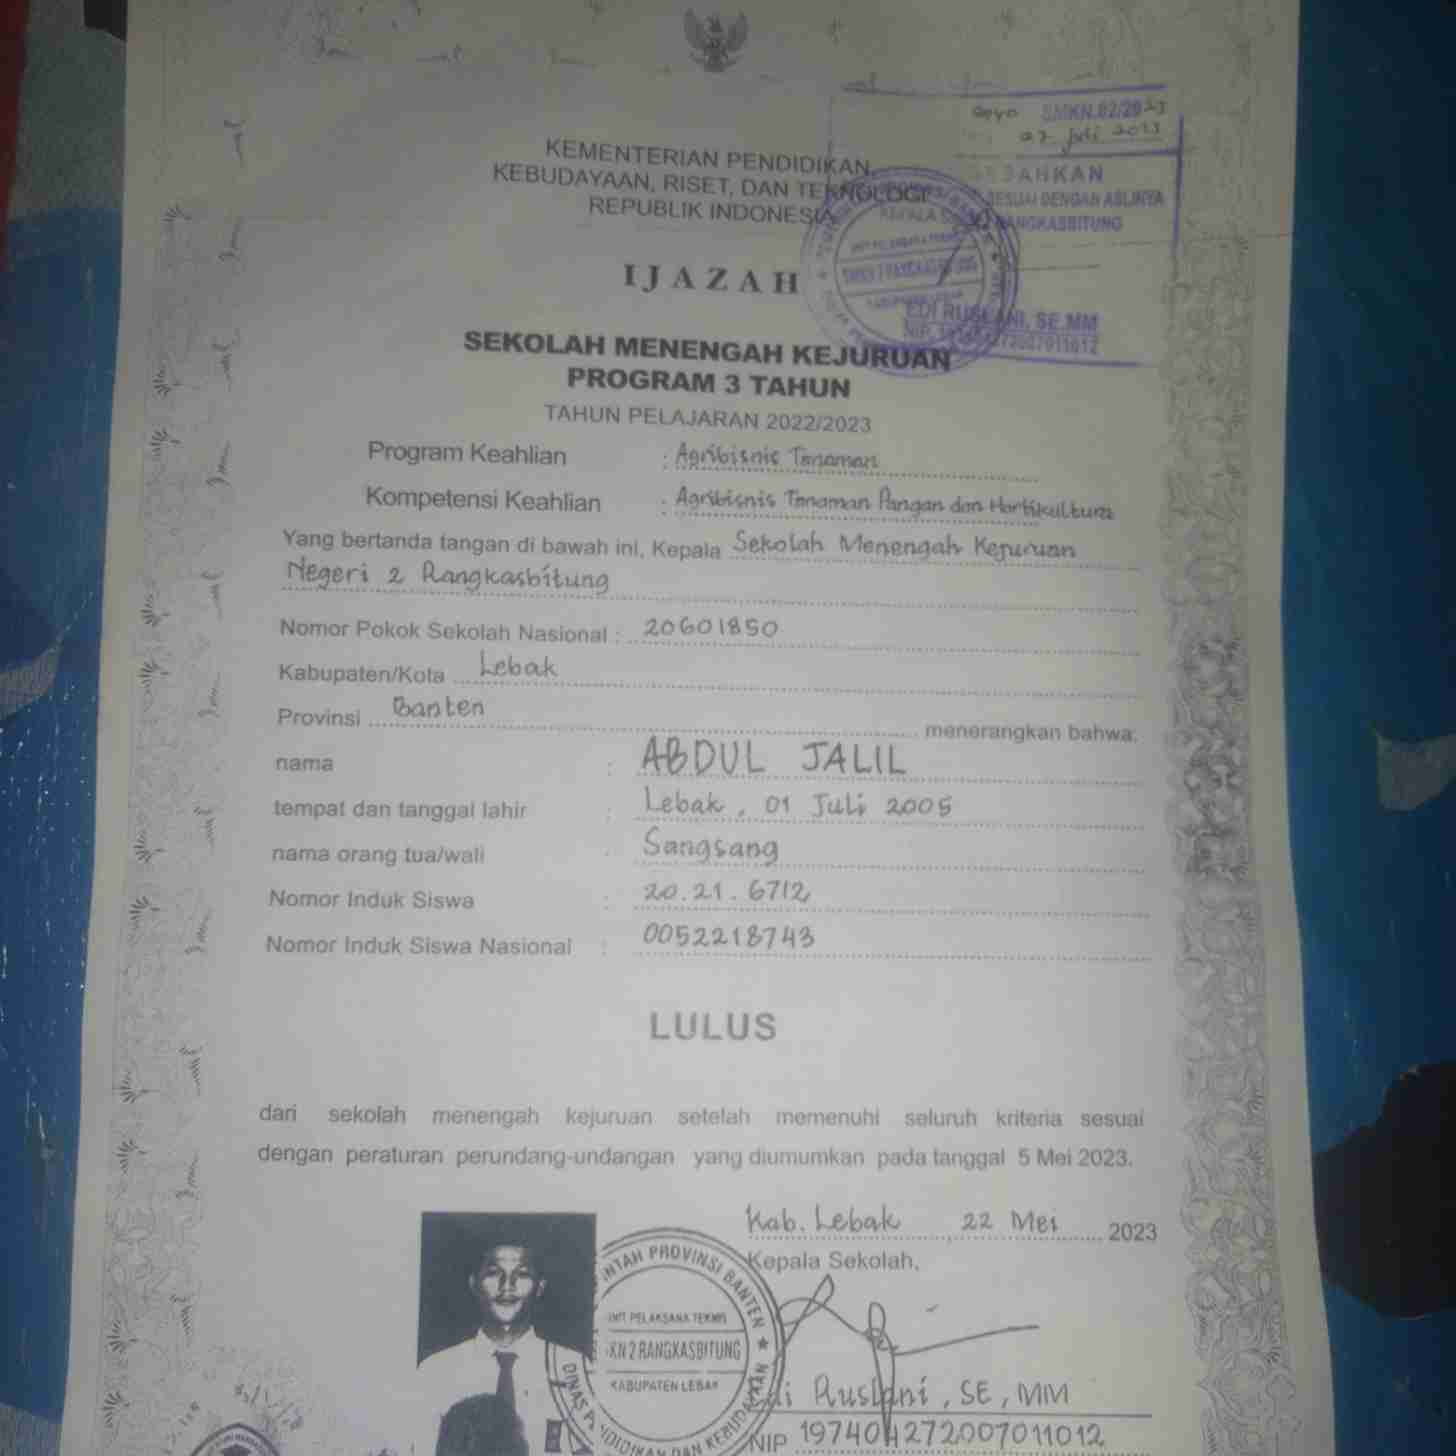 SMKN.02/2023
27 Juli 2023
SAHKAN
SESUAI DENGAN ASLINYA
RANGKASBITUNG
KEMENTERIAN PENDIDIKAN,
KEBUDAYAAN, RISET, DAN TEKNOLOGI
REPUBLIK INDONESIA
KEPALA
SMKN 2 RANGKASBITUNG
EDI RUSLANI, SE.MM
NIP.
IJAZAH
SEKOLAH MENENGAH KEJURUAN
PROGRAM 3 TAHUN
TAHUN PELAJARAN 2022/2023
Program Keahlian : Agribisnis Tanaman
Kompetensi Keahlian : Agribisnis Tanaman Pangan dan Hortikultura
Yang bertanda tangan di bawah ini, Kepala Sekolah Menengah Kejuruan
Negeri 2 Rangkasbitung
Nomor Pokok Sekolah Nasional : 20601850
Kabupaten/Kota Lebak
Provinsi Banten menerangkan bahwa:
nama : ABDUL JALIL
tempat dan tanggal lahir : Lebak, 01 Juli 2005
nama orang tua/wali : Sangsang
Nomor Induk Siswa : 20.21.6712
Nomor Induk Siswa Nasional : 0052218743
LULUS
dari sekolah menengah kejuruan setelah memenuhi seluruh kriteria sesuai
dengan peraturan perundang-undangan yang diumumkan pada tanggal 5 Mei 2023.
Kab. Lebak, 22 Mei 2023
Kepala Sekolah,
NTAH PROVINSI BANTEN
UNIT PELAKSANA TEKNIS
KN 2 RANGKASBITUNG
KABUPATEN LEBAK
DINAS PENDIDIKAN DAN KEBUDAYAAN
Edi Ruslani, SE, MM
NIP 197404272007011012